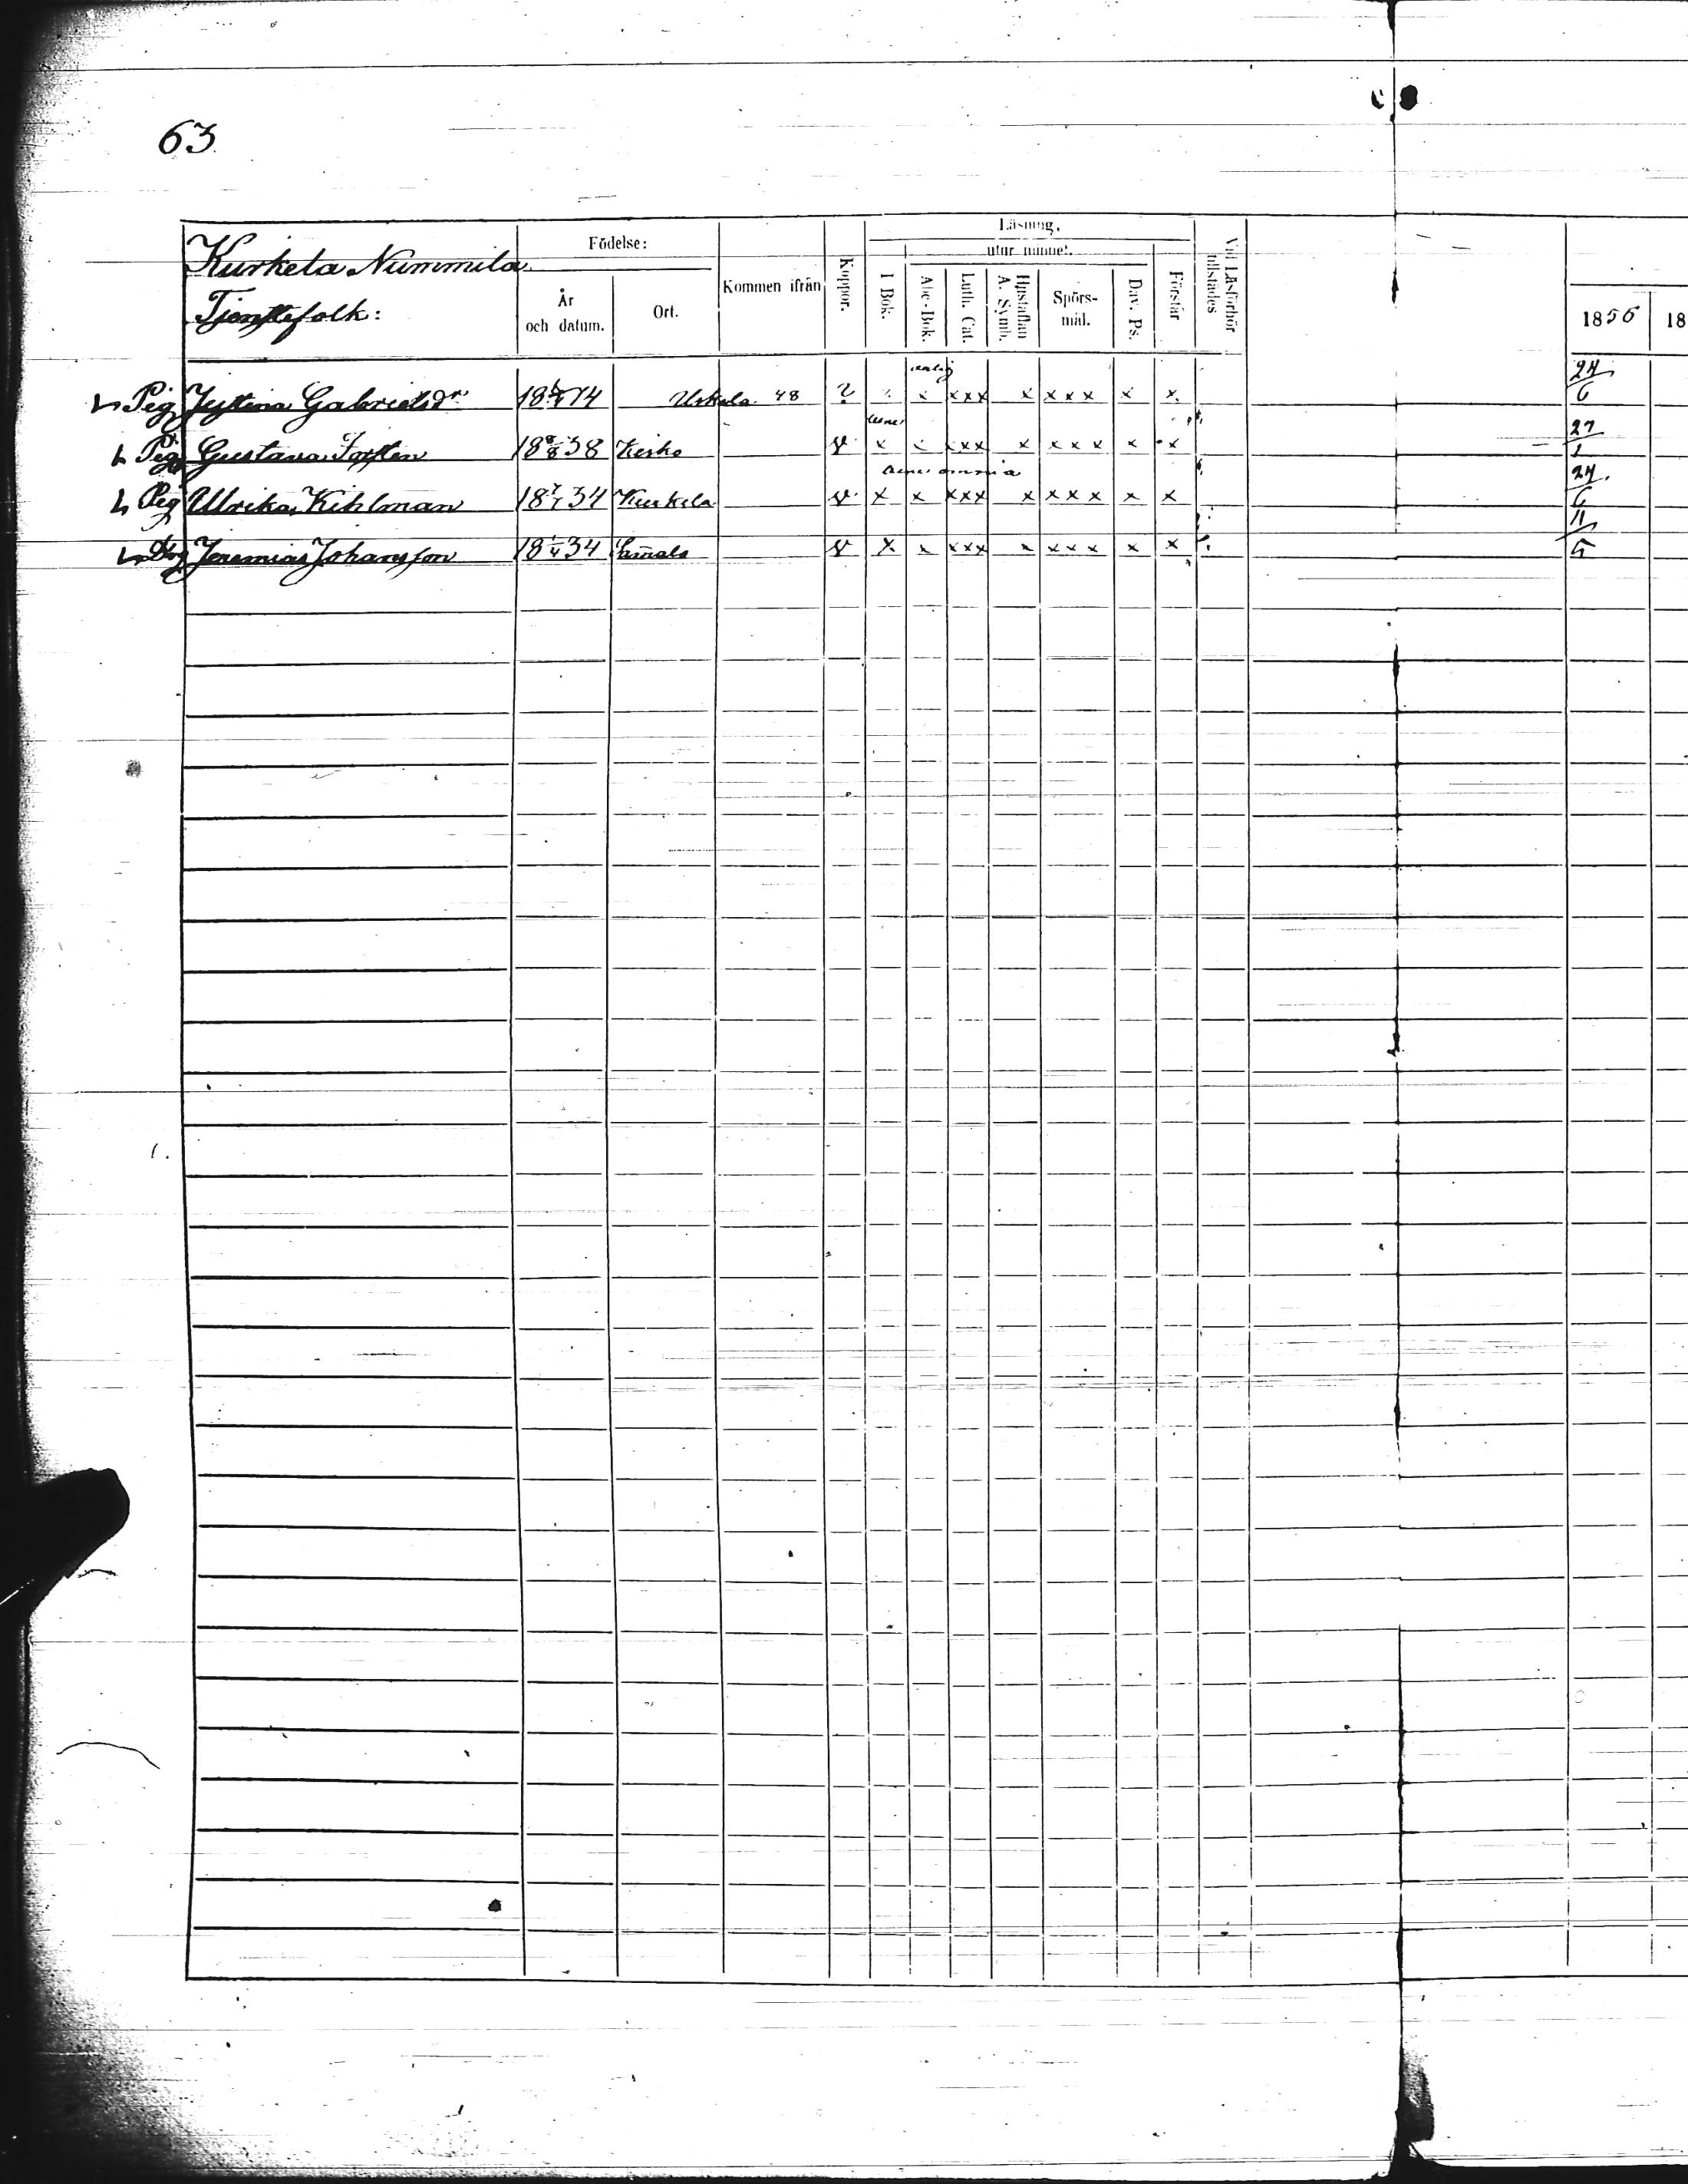 63
Kurkela Nummila.
Tjenstefolk:
Födelse:
År och datum.
Ort.
Kommen ifrån
Koppor.
Läsning,
utur minnet.
I Bok.
Abc-Bok.
Luth. Cat.
Hustaflan A. Symb.
Spörs-mål.
Dav. Ps.
Förstår
Vid Läsförhör tillstädes
1856 18
Pig Justina Gabrielsdr 18 14 Uskela 48 ? x xxx x xxx x x 24/6
Pig Gustava Forsten 18 8/8 38 Kisko v x x xxx x xxx x x 27/1
bene omnia
Pig Ulrika Kihlman 18 7/7 34 Kurkela v x x xxx x xxx x x 24/6
Drg Jeremias Johansson 18 1/4 34 Samala v x x xxx x xxx x x 11/5